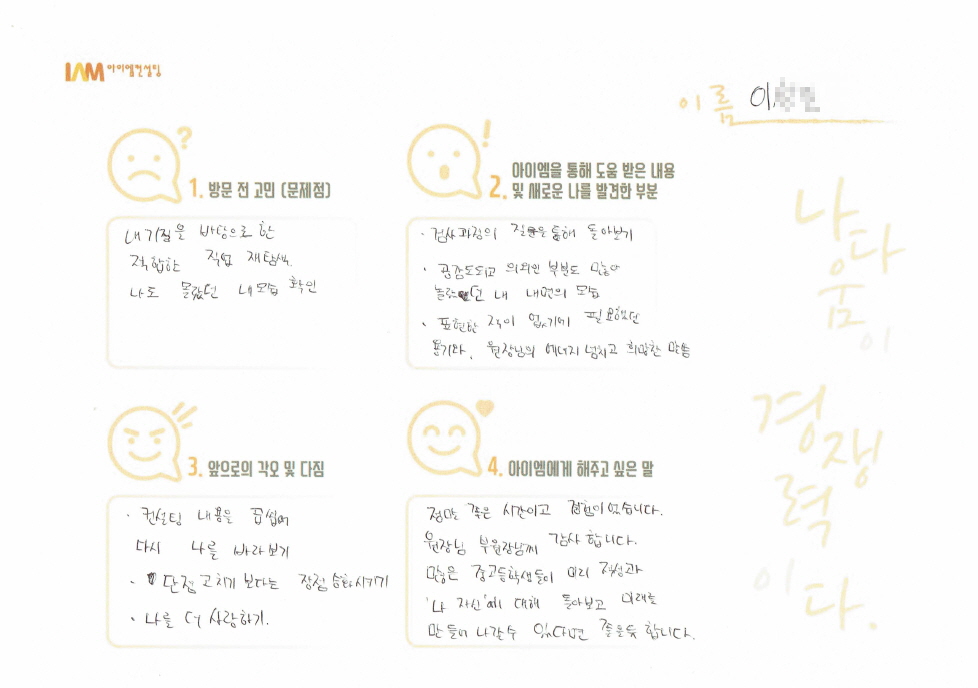 IAM 아이엠컨설팅
이름 이
1. 방문 전 고민 (문제점)
내 기질을 바탕으로 한
적합한 직업 재탐색.
나도 몰랐던 내모습 확인
아이엠을 통해 도움 받은 내용
2. 및 새로운 나를 발견한 부분
· 검사과정의 질문을 통해 돌아보기
· 공감도되고 의외인 부분도 많아
놀랐던 내 내면의 모습
· 표현한 적이 없기에 필요했던
용기와, 원장님의 에너지 넘치고 희망찬 말씀
3. 앞으로의 각오 및 다짐
· 컨설팅 내용을 곱씹어
다시 나를 바라보기
· 단점 고치기 보다는 장점 승화시키기
· 나를 더 사랑하기.
4. 아이엠에게 해주고 싶은 말
정말 좋은 시간이고 경험이었습니다.
원장님 부원장님께 감사합니다.
많은 중고등학생들이 미리 적성과
'나 자신'에 대해 돌아보고 미래를
만들어 나갈수 있다면 좋을듯 합니다.
나다움이
경쟁력
이다.